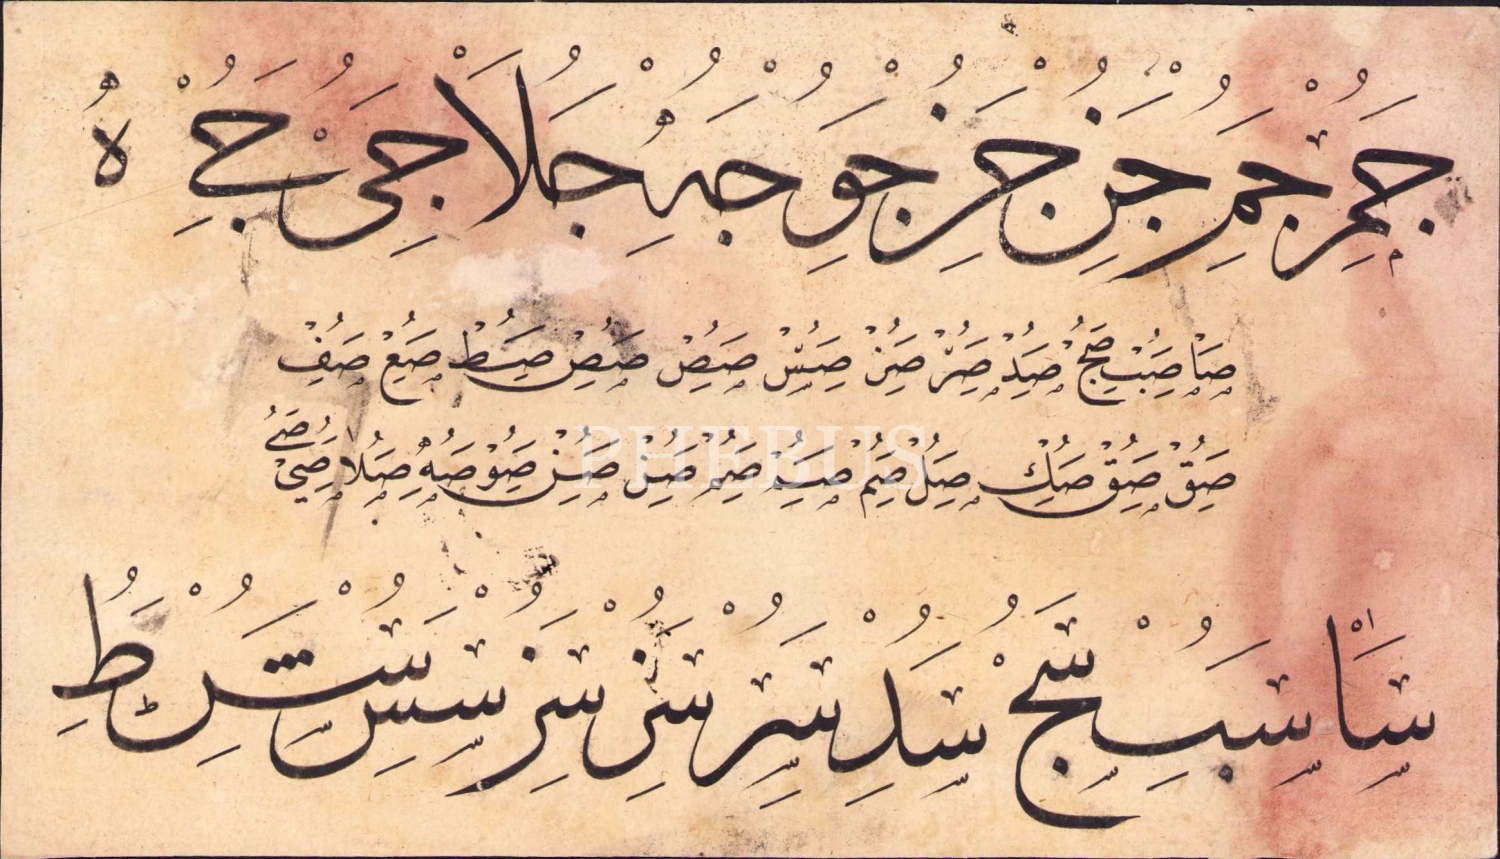 جم جم جن جن جو جه جلا جى جے ه
صا صب صج صد صر صز صس صص صص صط صع صف
صق صق صك صل صم صم صم صن صن صو صه صلا صى صے
PHEBUS
سا سب سج سد سر سز سز سس سس سط